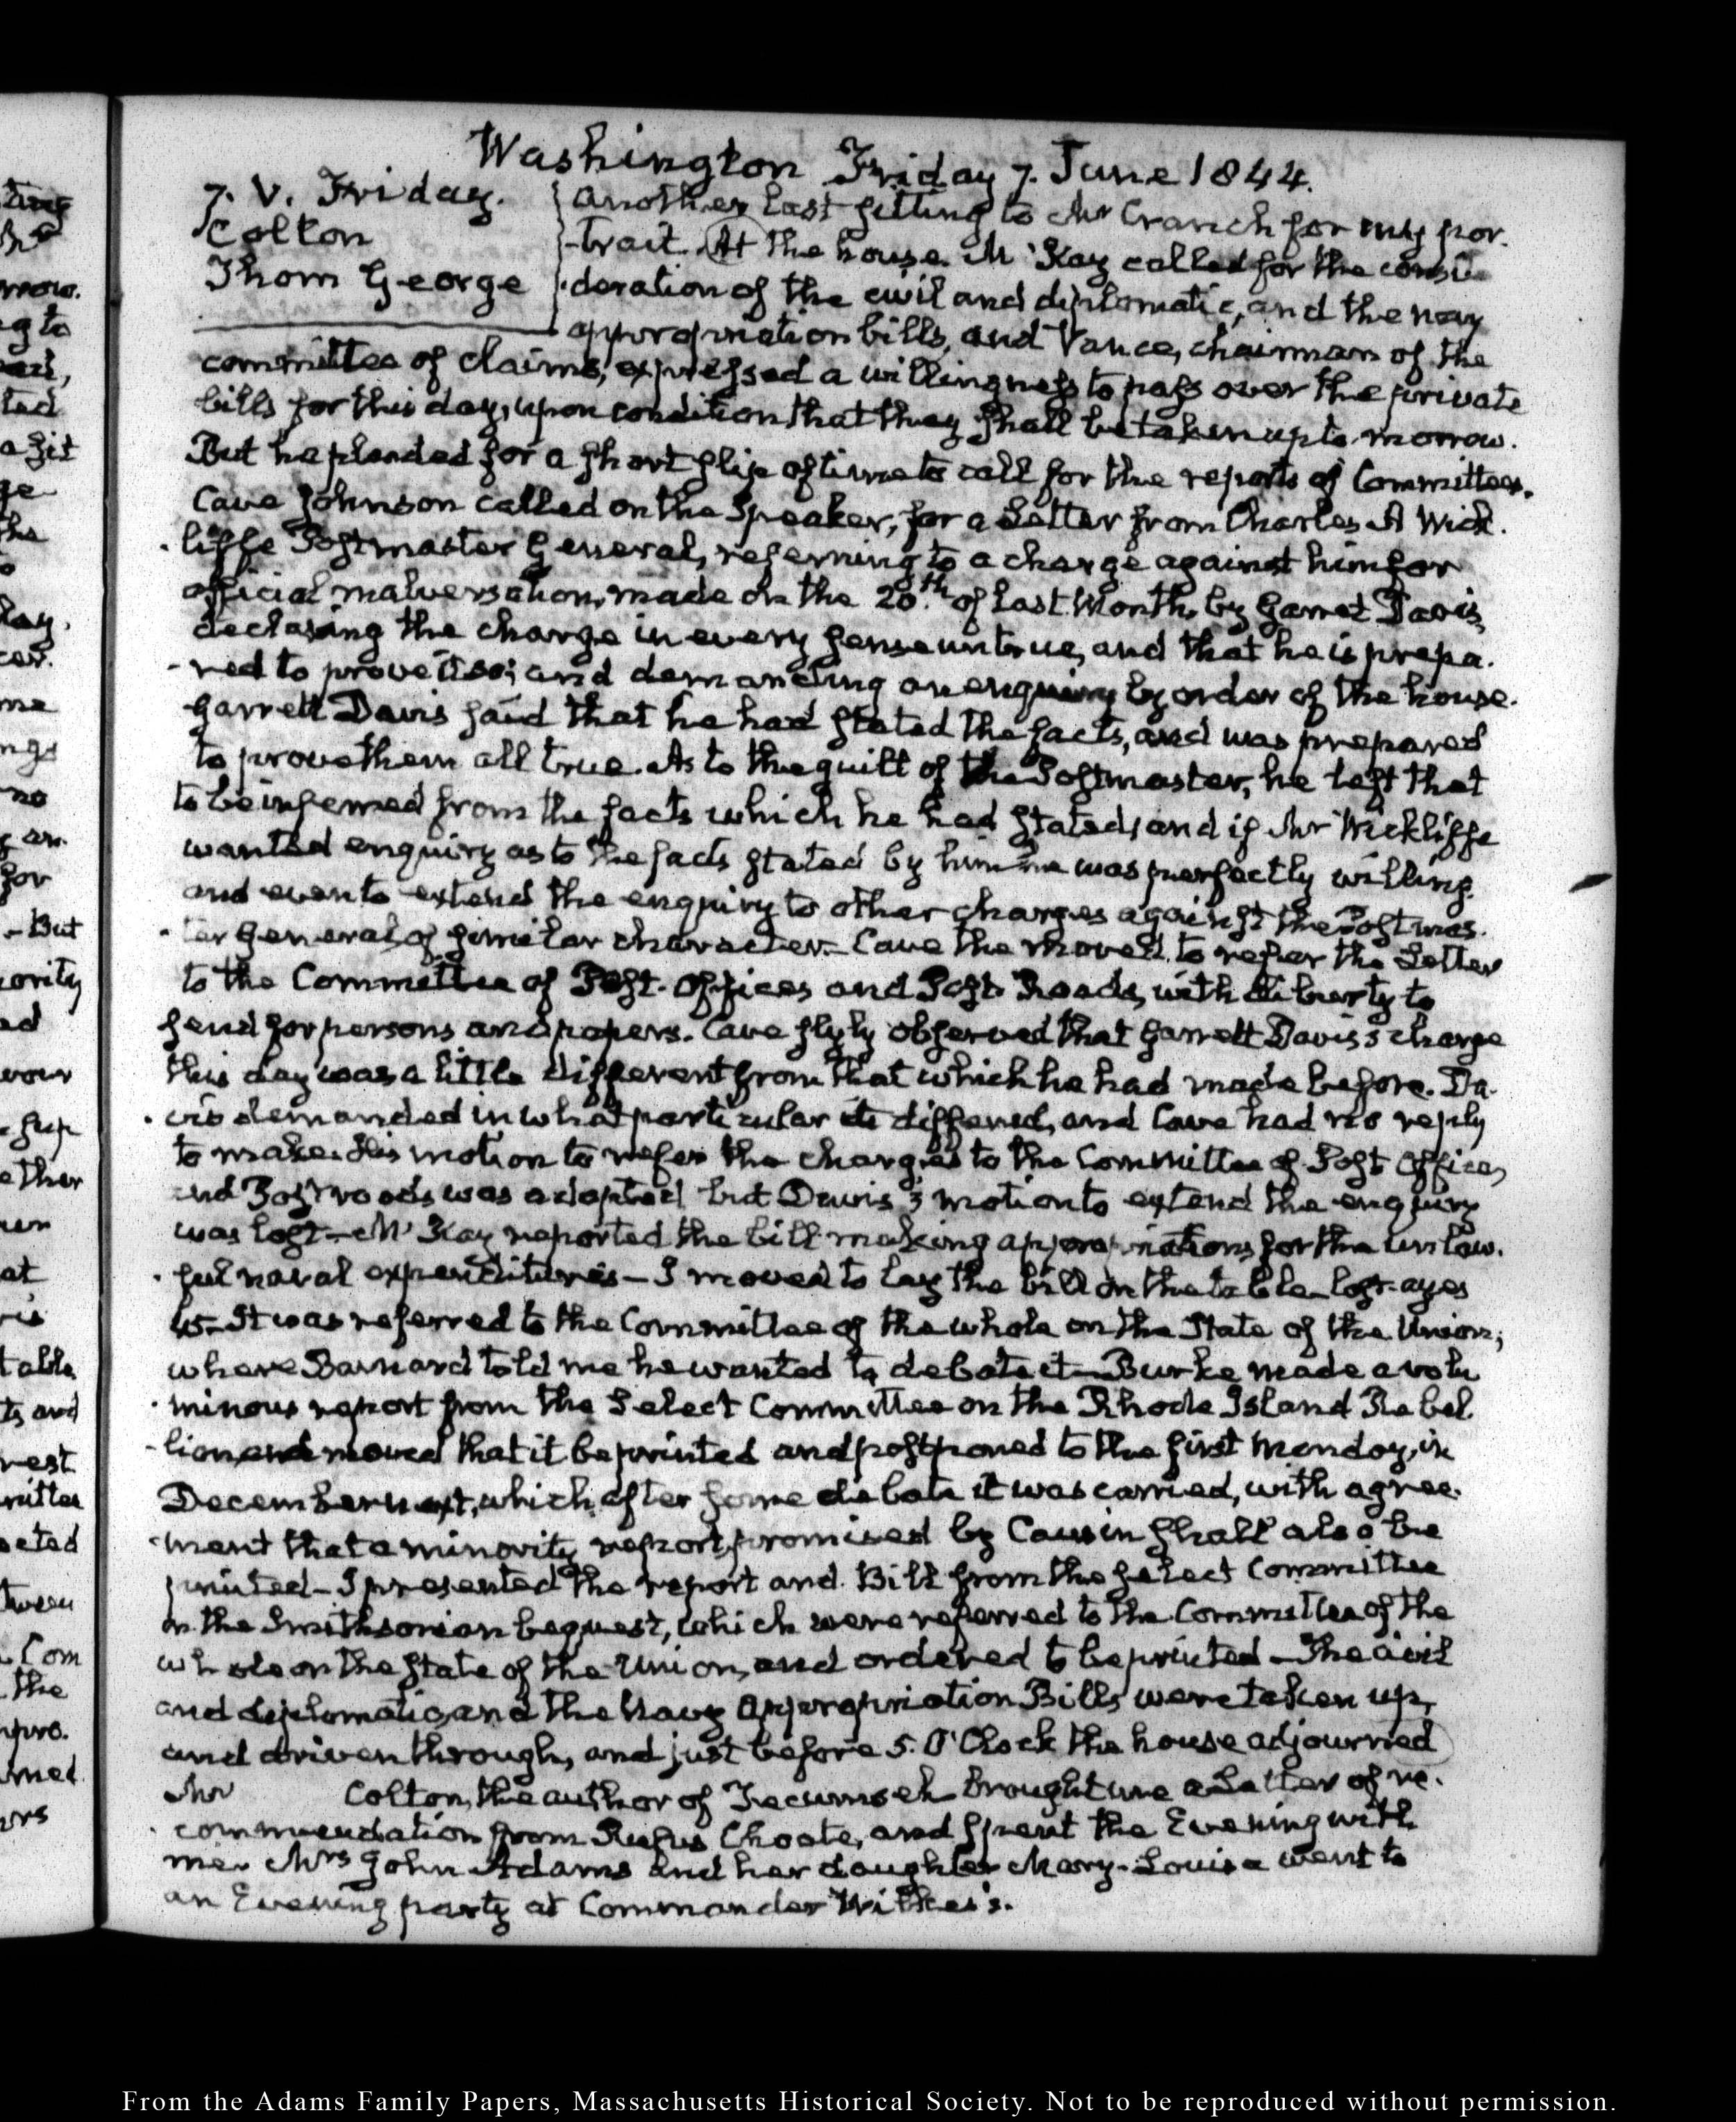 Washington Friday 7. June 1844.
7. V. Friday.
Colton
Thom George
Another last sitting to Mr Cranch for my por-
-trait. At the house. McKay called for the consi-
-deration of the civil and diplomatic, and the navy
appropriation bills, and Vance, chairman of the
committee of Claims, expressed a willingness to pass over the private
bills for this day, upon condition that they shall be taken up to-morrow.
But he pleaded for a short slip of time to call for the reports of Committees.
Cave Johnson called on the Speaker, for a Letter from Charles A Wick-
-liffe Postmaster General, referring to a charge against him for
official malversation, made on the 20.th of last Month, by Garret Davis,
declaring the charge in every sense untrue, and that he is prepa-
-red to prove it so; and demanding an enquiry by order of the house.
Garrett Davis said that he had stated the facts, and was prepared
to prove them all true. As to the guilt of the Postmaster, he left that
to be inferred from the facts which he had stated, and if Mr Wickliffe
wanted enquiry as to the facts stated by him he was perfectly willing,
and even to extend the enquiry to other charges against the Postmas-
-ter General of similar character. Cave the moved to refer the Letter
to the Committee of Post-Offices and Post-Roads, with liberty to
send for persons and papers. Cave slyly observed that Garrett Davis's charge
this day was a little different from that which he had made before. Da-
-vis demanded in what particular it differed, and Cave had no reply
to make. His motion to refer the charges to the Committee of Post Offices,
and Post roads was adopted but Davis's motion to extend the enquiry
was lost—McKay reported the bill making appropriations for the unlaw-
-ful naval expenditures—I moved to lay the bill on the table—lost. ayes
45—It was referred to the Committee of the whole on the State of the Union;
where Barnard told me he wanted to debate it—Burke made a volu
-minous report from the Select Committee on the Rhode Island Rebel-
-lion and moved that it be printed and postponed to the first Monday, in
December next, which after some debate it was carried, with agree-
-ment that a minority report, promised by Causin shall also be
printed—I presented the report and Bill from the select Committee
on the Smithsonian bequest, which were referred to the Committee of the
whole on the state of the Union, and ordered to be printed—The civil
and diplomatic, and the Navy Appropriation Bills were taken up,
and driven through, and just before 5. O'Clock the house adjourned
Mr Colton, the author of Tecumseh brought me a Letter of re-
-commendation from Rufus Choate, and spent the Evening with
me. Mrs John Adams and her daughter Mary-Louisa went to
an Evening party at Commander Wilkes's.
From the Adams Family Papers, Massachusetts Historical Society. Not to be reproduced without permission.